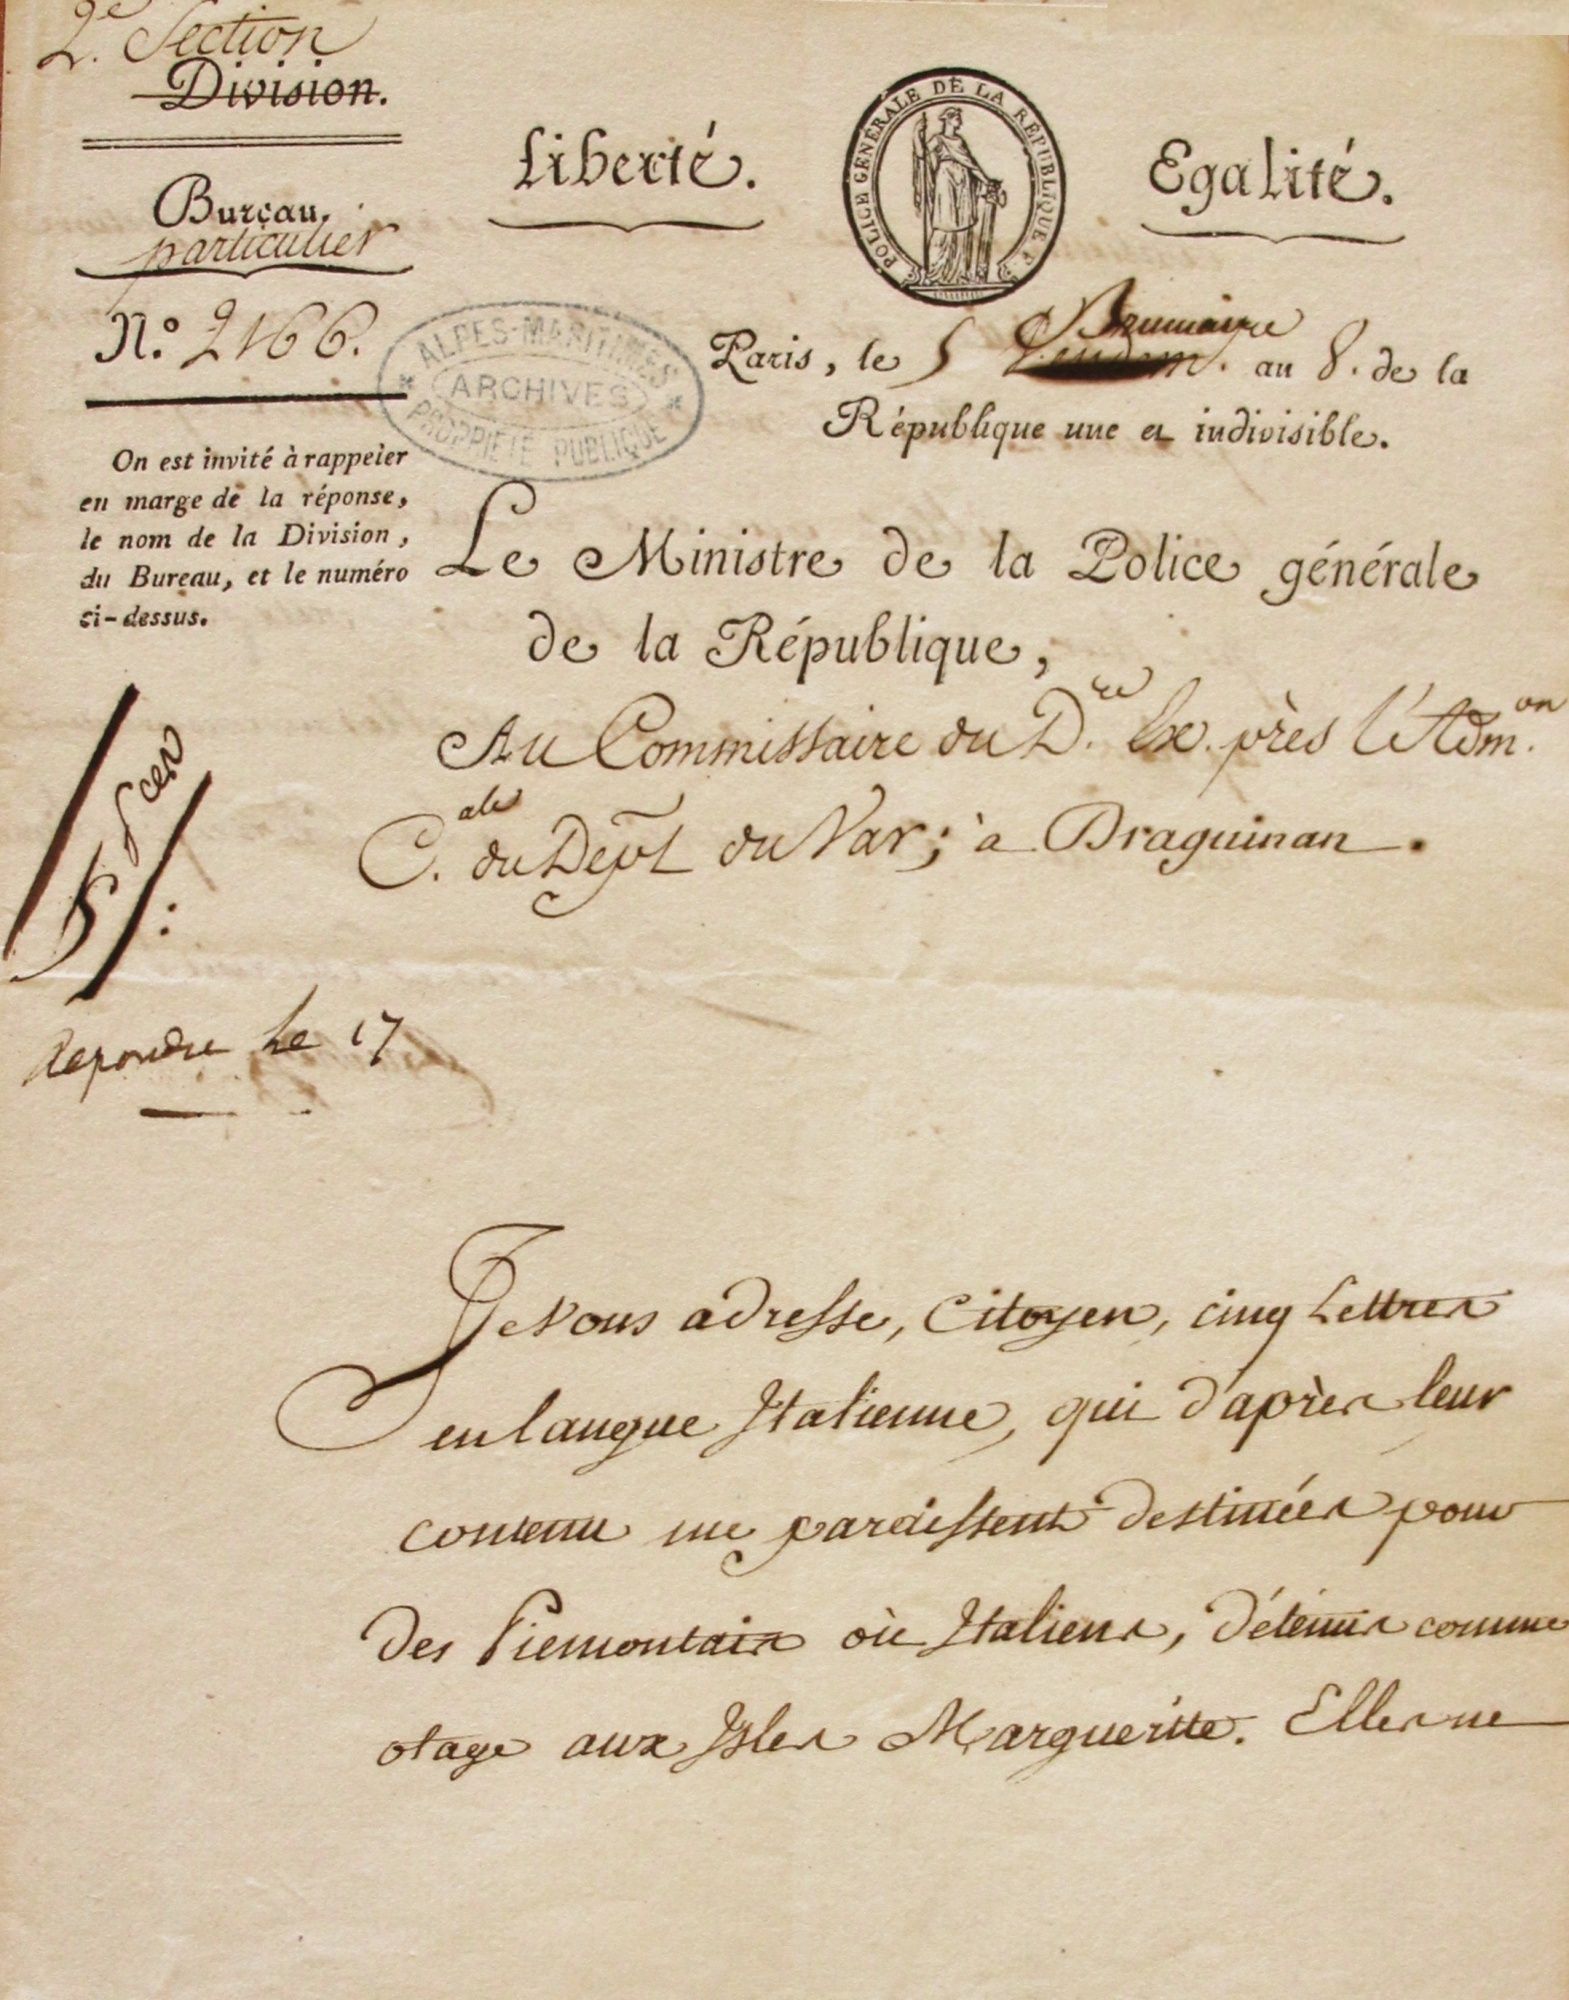 2e. Section
Division.
Bureau,
particulier
N.º 2166.
On est invité à rappeler
en marge de la réponse,
le nom de la Division,
du Bureau, et le numéro
ci-dessus.
Liberté.
POLICE GÉNÉRALE DE LA RÉPUBLIQUE F.
Egalité.
ALPES-MARITIMES
ARCHIVES
PROPRIÉTÉ PUBLIQUE
Brumaire
Paris, le 5 Vendem. an 8. de la
République une et indivisible.
Le Ministre de la Police générale
de la République,
Au Commissaire du D.re Ex. près l'Adm.on
C.ale du Dept du Var; à Draguinan.
Repondre le 17
Je vous adresse, Citoyen, cinq Lettres
en langue Italienne, qui d'après leur
contenu me paraissent destinées pour
des Piemontais où Italiens, détenus comme
otage aux Isles Marguerite. Elles ne